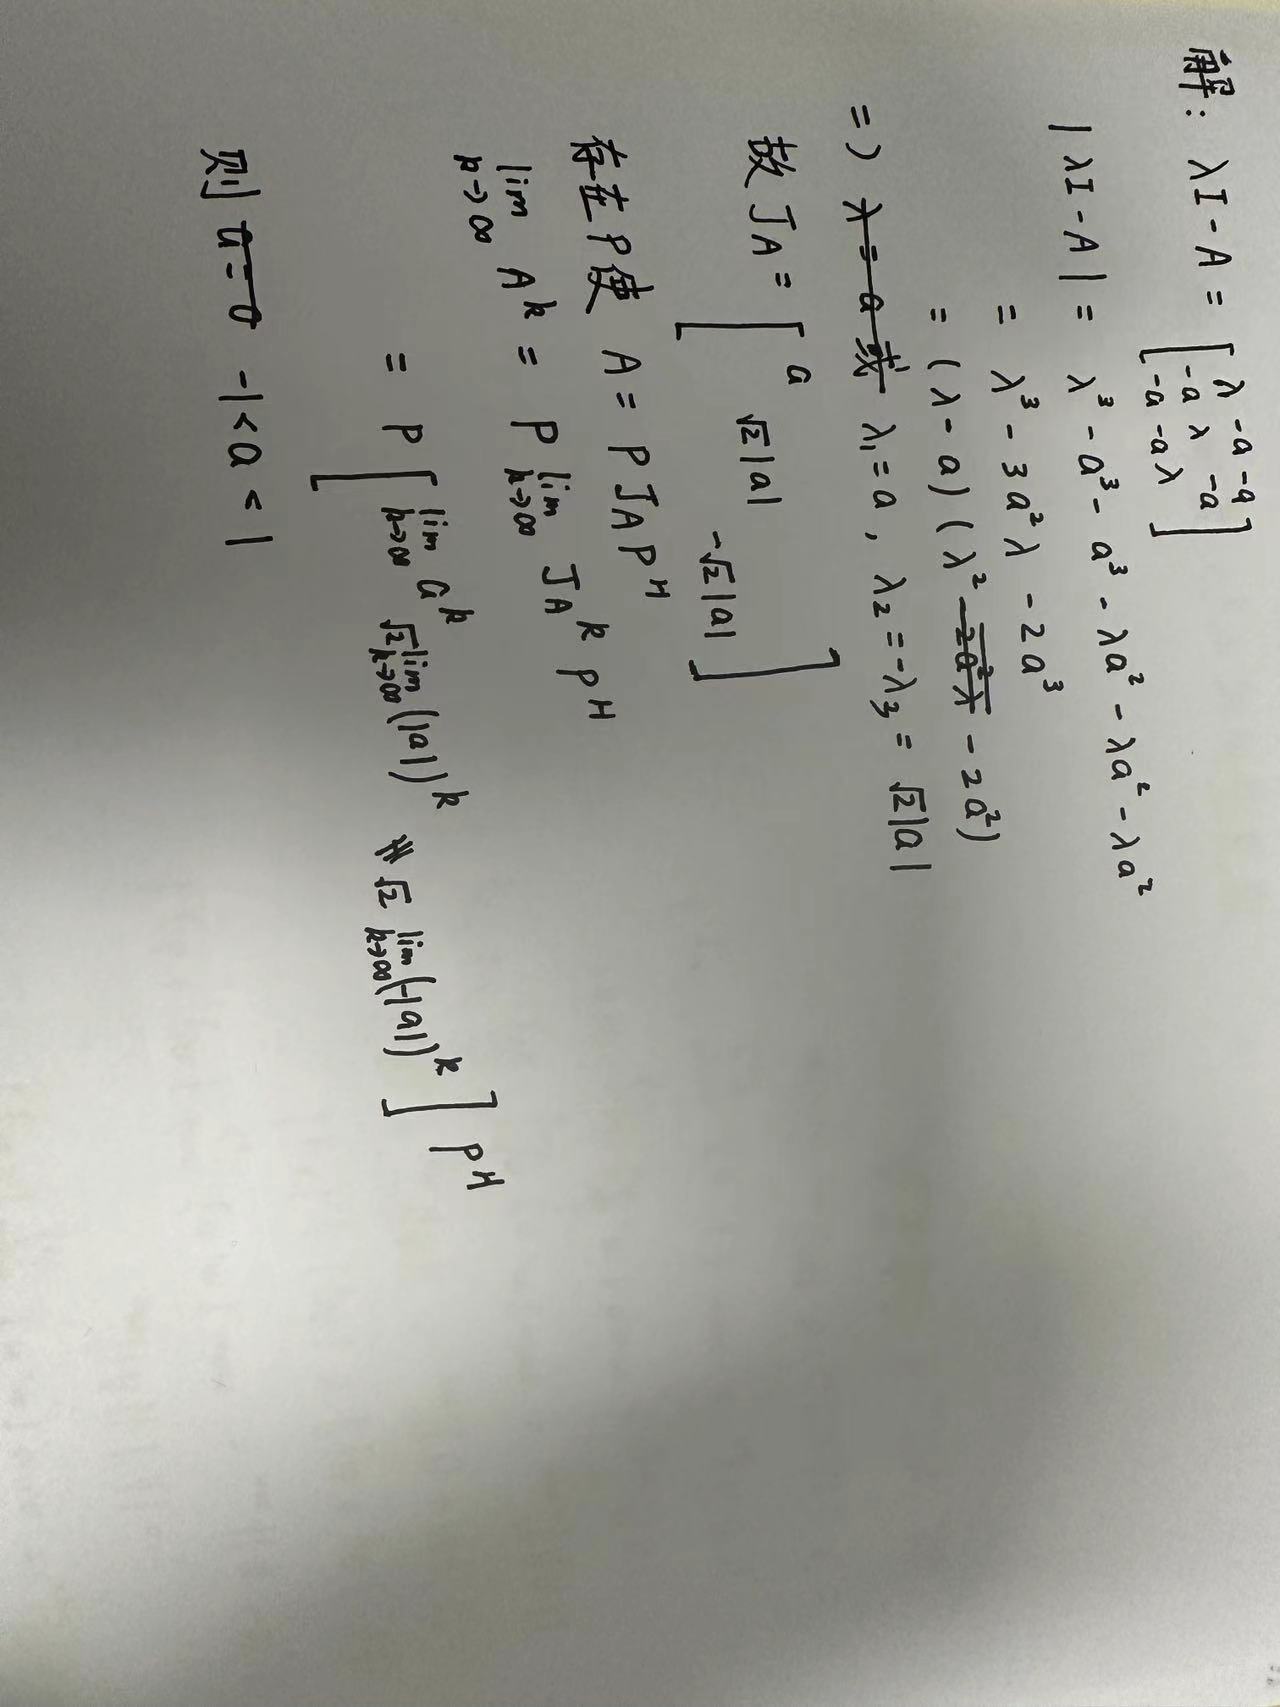 解: λI-A = [λ -a -a
-a λ -a
-a -a λ]
|λI-A| = λ³ - a³ - a³ - λa² - λa² - λa²
= λ³ - 3a²λ - 2a³
= (λ-a)(λ² - 2a²λ - 2a²)
=) λ=a 或 λ₁=a, λ₂=-λ₃=√2|a|
故 J_A = [a
√2|a|
-√2|a|]
存在P使 A = P J_A P^H
lim k→∞ A^k = P lim k→∞ J_A^k P^H
= P [lim k→∞ a^k √2 lim k→∞ (|a|)^k √2 lim k→∞ (-|a|)^k] P^H
则 a=0 -1<a<1